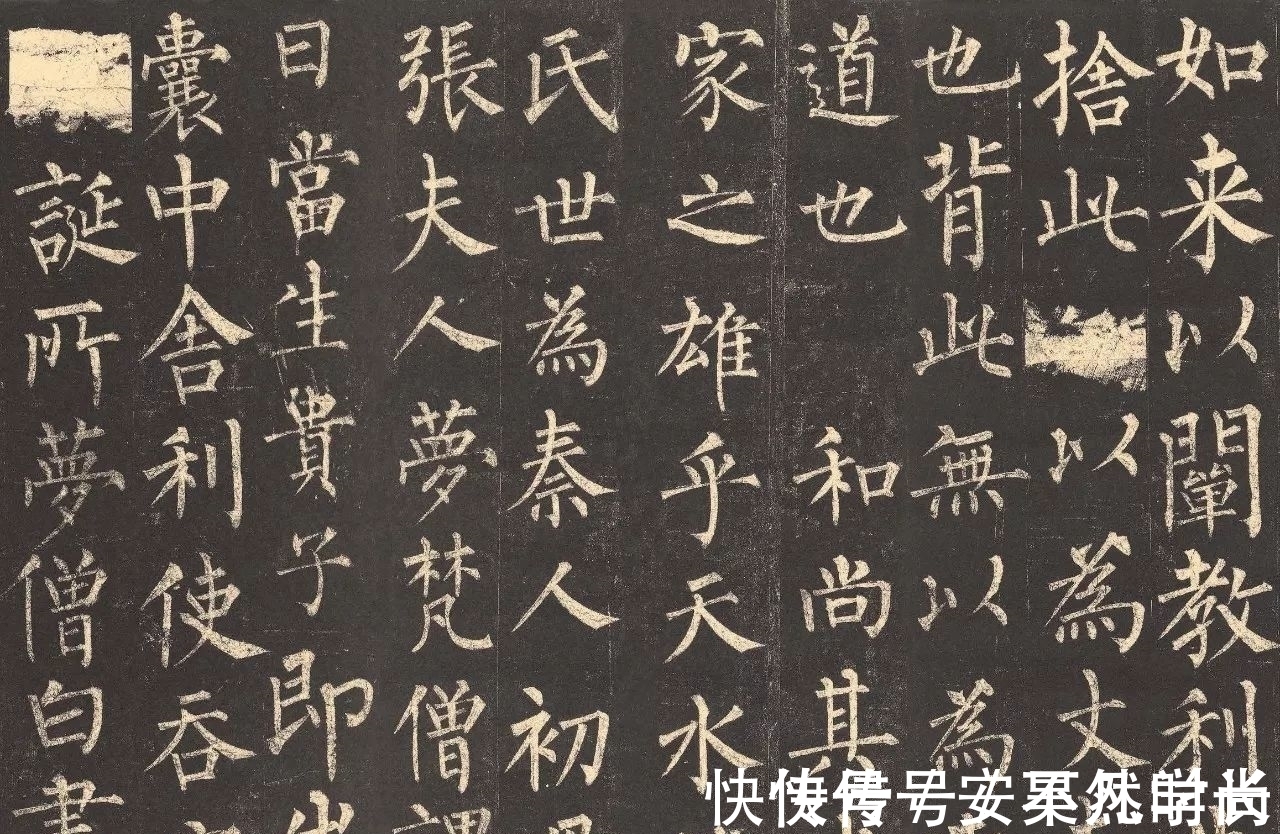 如来以闡教利
捨此以為丈
也背此無以為
道也 和尚其
家之雄乎天水
氏世為秦人初
張夫人夢梵僧
曰當生貴子即
囊中舍利使吞
誕所夢僧白